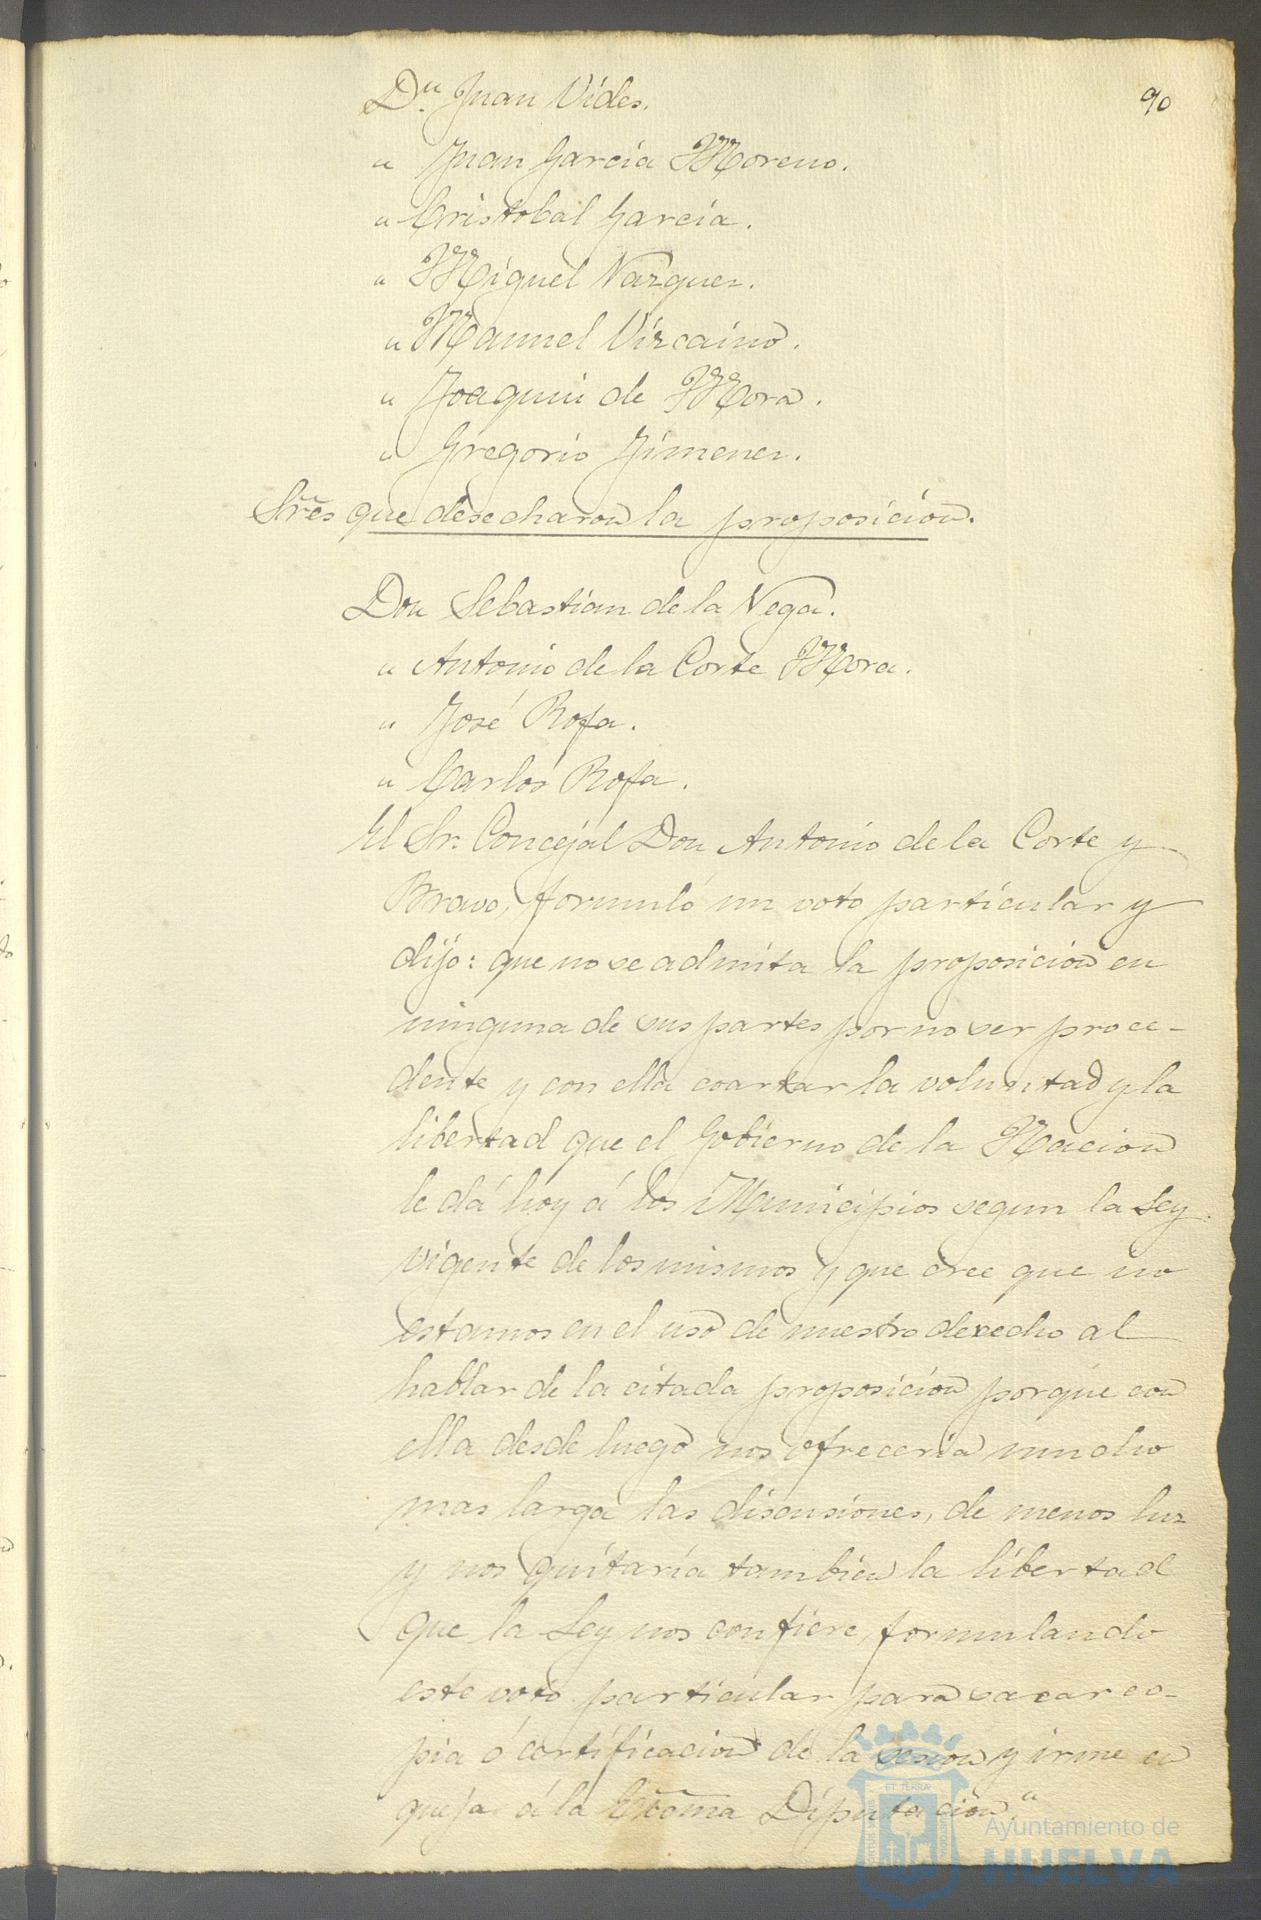 90
Dn. Juan Vides.
" Juan García Moreno.
" Cristobal García.
" Miguel Vazquez.
" Manuel Vizcaino.
" Joaquin de Mora.
" Gregorio Jimenez.
Sres que desecharon la proposición.
Don Sebastian de la Vega.
" Antonio de la Corte Mora.
" José Rofa.
" Carlos Rofa.
El Sr. Concejal Don Antonio de la Corte y
Bravo, formuló un voto particular y
dijo: que no se admita la proposicion en
ninguna de sus partes por no ser proce-
dente y con ella coartar la voluntad y la
libertad que el Gobierno de la Nacion
le dá hoy á los Municipios segun la Ley
vigente de los mismos y que cree que no
estamos en el uso de nuestro derecho al
hablar de la citada proposicion porque con
ella desde luego nos ofreceria mucho
mas larga las discusiones, de menos luz
y nos quitaría tambien la libertad
que la Ley nos confiere, formulando
este voto particular para sacar co-
pia ó certificacion de la sesion y irme en
queja á la Exma Diputacion."
ET TERRA
Ayuntamiento de
HUELVA